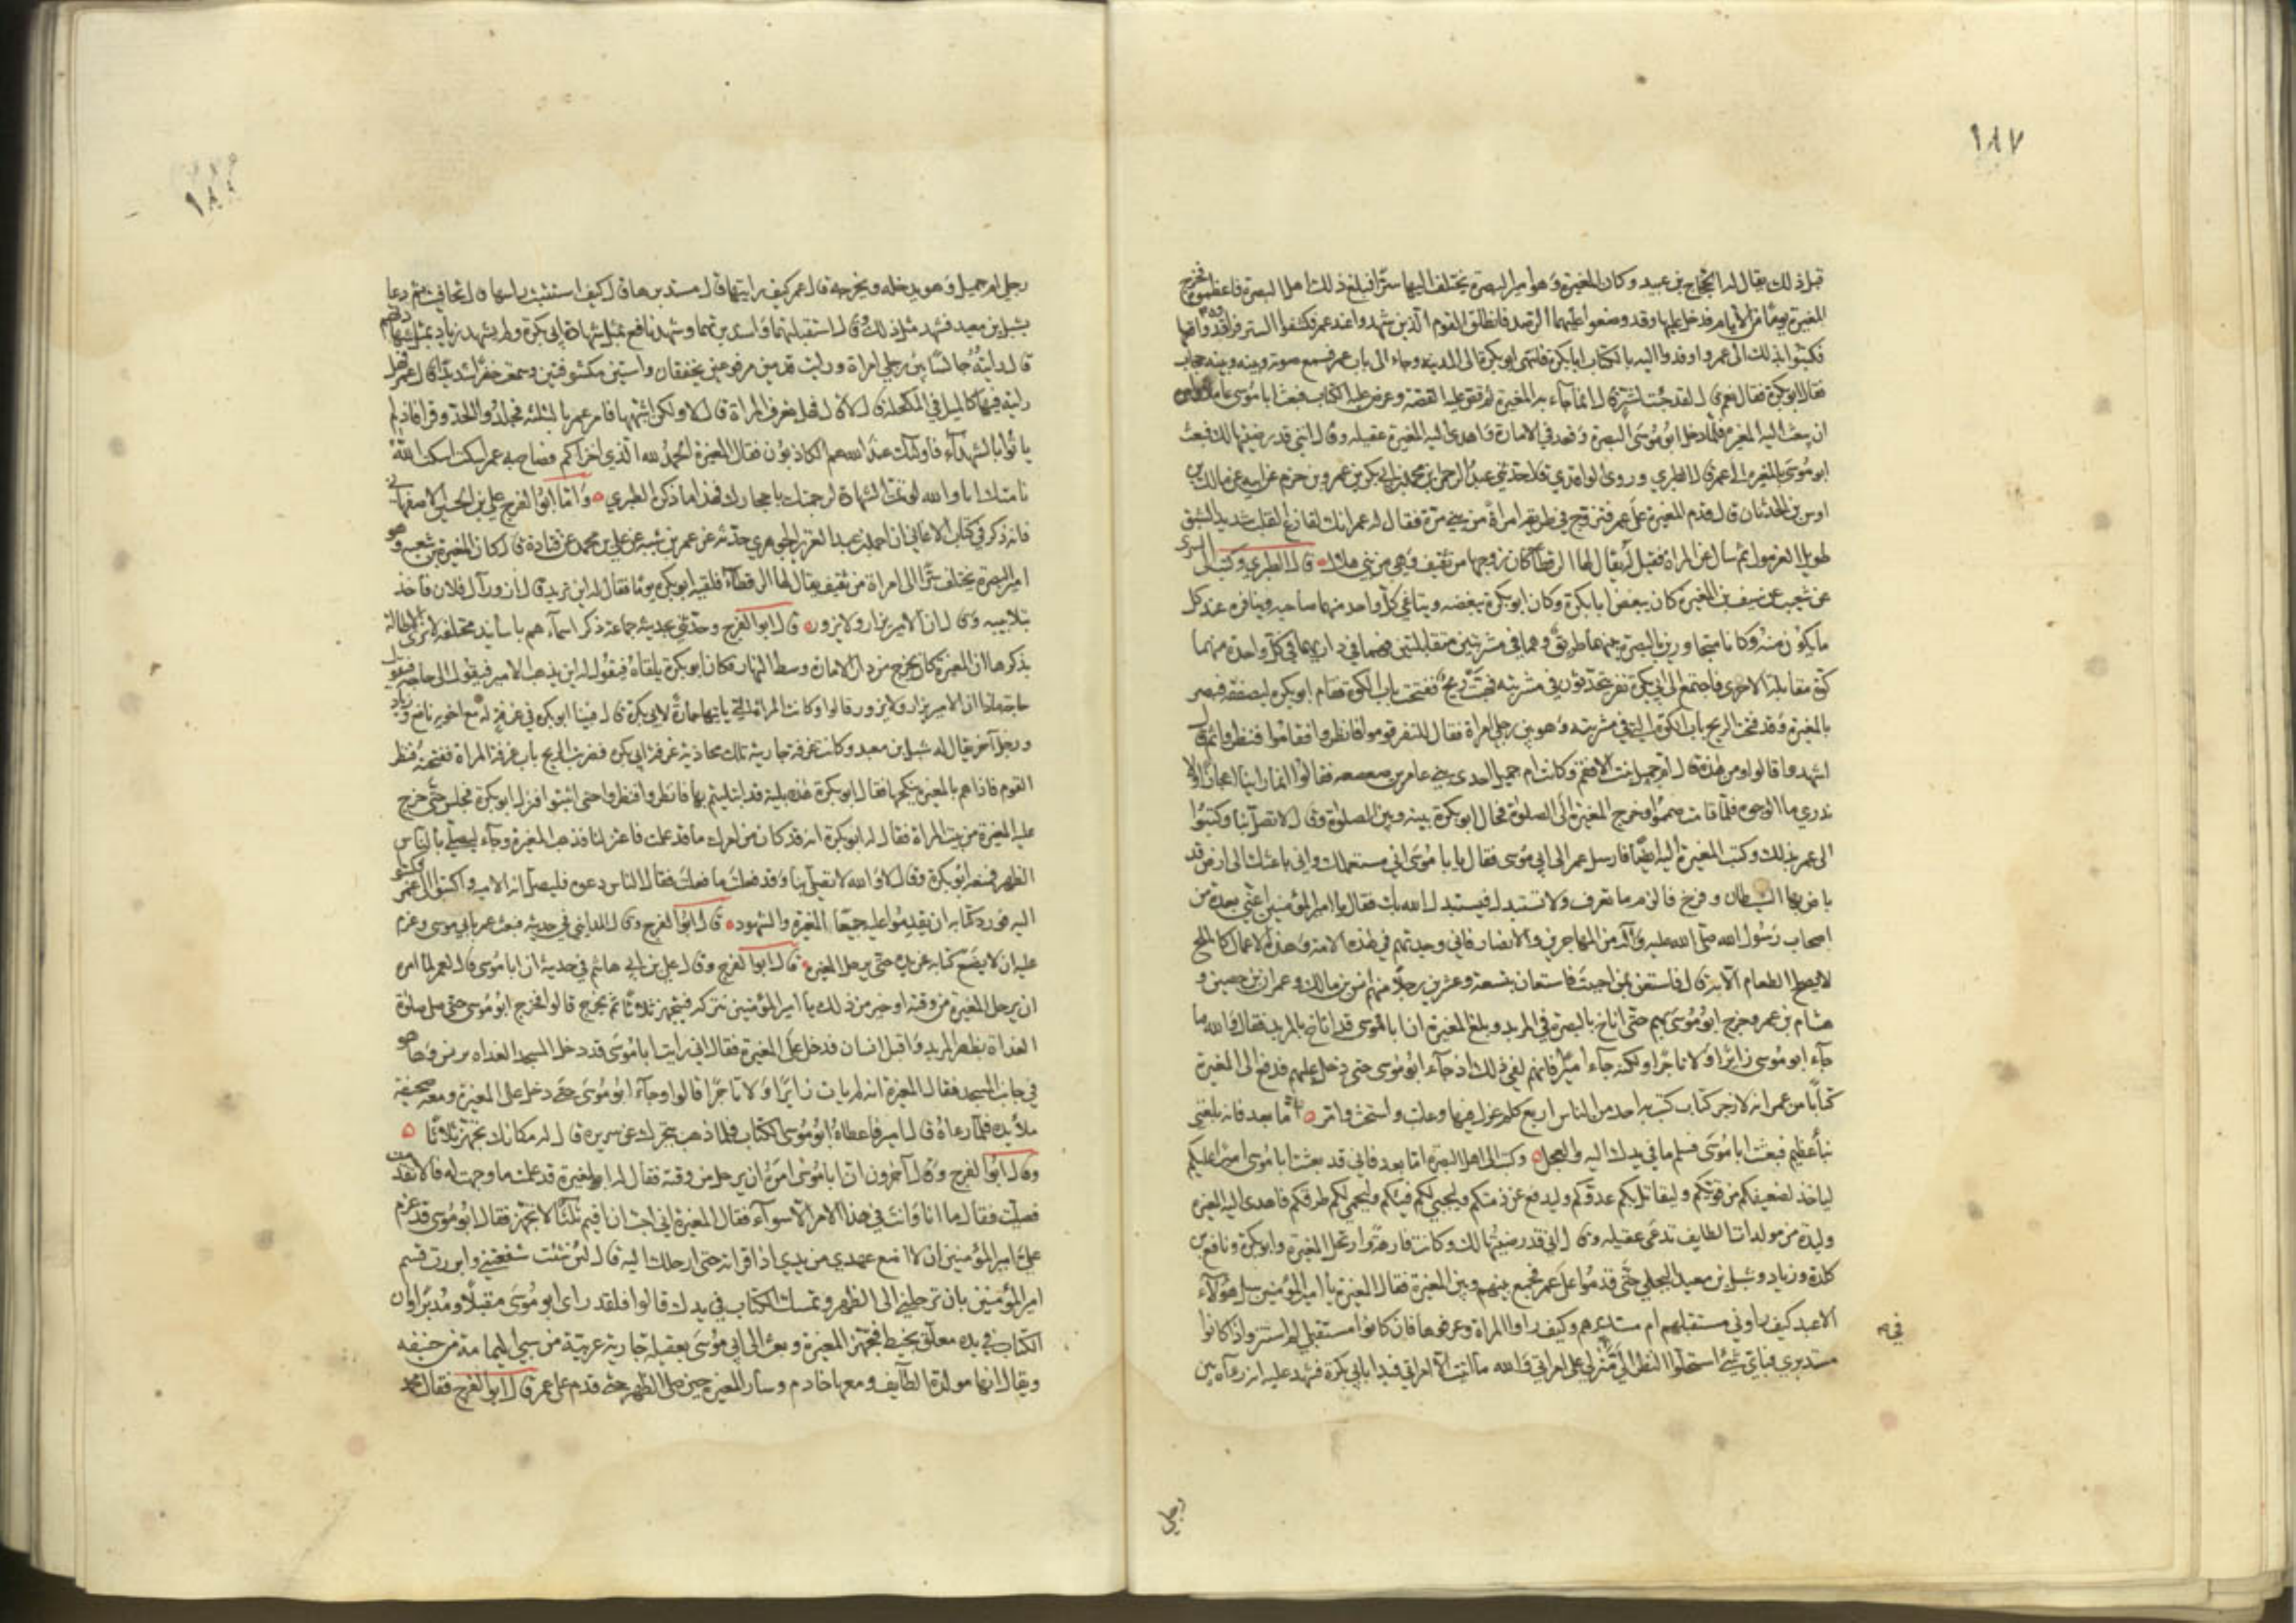 ١٨٧
قبل ذلك يقال له الحجاج بن عبيد وكان المغيرة وهو امير البصرة يختلف اليها سرا فبلغ ذلك اهل البصرة فاعظموه فخرج
المغيرة يوما من الايام فدخل عليها وقد وضعوا عليهما الرصد فانطلق القوم الذين شهدوا عند عمر فكشفوا الستر فراوه قد واقعها
فكتبوا بذلك الى عمر واوفدوا اليه بالكتاب ابا بكرة فانتهى ابو بكرة الى المدينة وجاء الى باب عمر فسمع صوته وبينه وبينه حجاب
فقال ابو بكرة فقال نعم قال لقد جئت لشر قال انما جاء به المغيرة ثم قص عليه القصة وعرض عليه الكتاب فبعث ابا موسى عاملا وامره
ان يبعث اليه المغيرة فلما دخل ابو موسى البصرة وقعد في الامارة اهدى اليه المغيرة عقيلة وقال انني قد رضيتها لك فبعث
ابو موسى بالمغيرة الى عمر قال الطبري وروى الواقدي قال حدثني عبد الرحمن بن محمد بن ابي بكر بن عمرو بن حزم عن ابيه عن مالك بن
اوس بن الحدثان قال قدم المغيرة على عمر فتزوج في طريقه امراة من بني مرة فقال له عمر انك لفارغ القلب شديد الشبق
طويل الغرمول ثم سال عن المراة فقيل له يقال لها الرقطا كان زوجها من ثقيف وهي من بني هلال قال الطبري وكتب الى السري
عن شعيب عن سيف ان المغيرة كان يبغض ابا بكرة وكان ابو بكرة يبغضه ويناغي كل واحد منهما صاحبه وينافره عند كل
ما يكون منه وكانا متجاورين بالبصرة بينهما طريق وهما في مشربتين متقابلتين فهما في داريهما في كل واحدة منهما
كوة مقابلة الاخرى فاجتمع الى ابي بكرة نفر يتحدثون في مشربته فهبت ريح ففتحت باب الكوة فقام ابو بكرة ليصفقه فبصر
بالمغيرة وقد فتحت الريح باب الكوة التي في مشربته وهو بين رجلي امراة فقال للنفر قوموا فانظروا فقاموا فنظروا ثم قال
اشهدوا قالوا ومن هذه قال ام جميل بنت الافقم وكانت ام جميل احدى بني عامر بن صعصعة فقالوا انما راينا اعجازا ولا
ندري ما الوجوه فلما قامت صمموا وخرج المغيرة الى الصلوة فحال ابو بكرة بينه وبين الصلوة وقال لا تصل بنا وكتبوا
الى عمر بذلك وكتب المغيرة اليه ايضا فارسل عمر الى ابي موسى فقال يا ابا موسى اني مستعملك واني باعثك الى ارض قد
باض بها الشيطان وفرخ فالزم ما تعرف ولا تستبدل فيستبدل الله بك فقال يا امير المؤمنين اعني بعدة من
اصحاب رسول الله صلى الله عليه وآله من المهاجرين والانصار فاني وجدتهم في هذه الامة وهذه الاعمال كالملح
لا يصلح الطعام الا به قال فاستعن بمن احببت فاستعان بتسعة وعشرين رجلا منهم انس بن مالك وعمران بن حصين و
هشام بن عمر وخرج ابو موسى بهم حتى اناخ بالبصرة في المربد وبلغ المغيرة ان ابا موسى قد اناخ بالمربد فقال والله ما
جاء ابو موسى زائرا ولا تاجرا ولكنه جاء اميرا فانهم لفي ذلك اذ جاء ابو موسى حتى دخل عليهم فدفع الى المغيرة
كتابا من عمر انه لاوجز كتاب كتب به احد من الناس اربع كلم عزل فيها وعاتب واستحث وامر اما بعد فانه بلغني
نبأ عظيم فبعثت ابا موسى فسلم ما في يدك اليه والعجل وكتب الى اهل البصرة اما بعد فاني قد بعثت ابا موسى اميرا عليكم
لياخذ لضعيفكم من قويكم وليقاتل بكم عدوكم وليدفع عن ذمتكم وليجبي لكم فيئكم وليحمي لكم طرقكم فاهدى اليه المغيرة
وليدة من مولدات الطايف تدعى عقيلة وقال اني قد رضيتها لك وكانت فارهة وارتحل المغيرة وابو بكرة ونافع بن
كلدة وزياد وشبل بن معبد البجلي حتى قدموا على عمر فجمع بينهم وبين المغيرة فقال المغيرة يا امير المؤمنين سل هؤلاء
الاعبد كيف راوني مستقبلهم ام مستدبرهم وكيف راوا المراة وعرفوها فان كانوا مستقبلي لم استتر وان كانوا
مستدبري فباي شئ استحلوا النظر الي في منزلي على امراتي والله ما اتيت الا امراتي فبدا بابي بكرة فشهد عليه انه رآه بين
رجلي
١٨٨
رجلي ام جميل وهو يدخله ويخرجه قال عمر كيف رايتهما قال مستدبرهما قال كيف استثبت راسها قال تجافيت ثم دعا
بشبل بن معبد فشهد مثل ذلك وقال استقبلتهما واستدبرتهما وشهد نافع بمثل شهادة ابي بكرة ولم يشهد زياد بمثل شهادتهم
قال رايته جالسا بين رجلي امراة ورايت قدمين مرفوعتين يخفقان واستين مكشوفتين وسمعت حفزا شديدا قال عمر فهل
رايته فيها كالميل في المكحلة قال لا قال فهل تعرف المراة قال لا ولكن اشبهها فامر عمر بالثلثة فجلدوا الحد وقرا فاذ لم
ياتوا بالشهداء فاولئك عند الله هم الكاذبون فقال المغيرة الحمد لله الذي اخزاكم فصاح به عمر اسكت اسكت الله
نامتك اما والله لو تمت الشهادة لرجمتك باحجارك فهذا ما ذكره الطبري واما ابو الفرج علي بن الحسين الاصفهاني
فانه ذكر في كتاب الاغاني ان احمد بن عبد العزيز الجوهري حدثه عن عمر بن شبه عن علي بن محمد عن قتادة قال كان المغيرة بن شعبه وهو
امير البصرة يختلف سرا الى امراة من ثقيف يقال لها الرقطاء فلقيه ابو بكرة يوما فقال له اين تريد قال ازور آل فلان فاخذ
بتلابيبه وقال ان الامير يزار ولا يزور قال ابو الفرج وحدثني بحديثه جماعة ذكر اسماءهم باسانيد مختلفة لا نرى الاطالة
بذكرها ان المغيرة كان يخرج من دار الامارة وسط النهار فكان ابو بكرة يلقاه فيقول له اين يذهب الامير فيقول الى حاجة فيقول
حاجة ماذا ان الامير يزار ولا يزور قالوا وكانت المراة التي ياتيها جارة لابي بكرة قال فبينا ابو بكرة في غرفة له مع اخويه نافع وزياد
ورجل آخر يقال له شبل بن معبد وكانت غرفة جاريته تلك محاذية غرفة ابي بكرة فضربت الريح باب غرفة المراة ففتحته فنظر
القوم فاذا هم بالمغيرة ينكحها فقال ابو بكرة هذه بلية قد ابتليتم بها فانظروا فنظروا حتى اثبتوا فنزل ابو بكرة فجلس حتى خرج
عليه المغيرة من بيت المراة فقال له ابو بكرة انه قد كان من امرك ما قد علمت فاعتزلنا فذهب المغيرة وجاء ليصلي بالناس
الظهر فمنعه ابو بكرة وقال لا والله لا تصلي بنا وقد فعلت ما فعلت فقال الناس دعوه فليصل انه الامير واكتبوا الى عمر وكتبوا
اليه فورد كتابه ان يقدموا عليه جميعا المغيرة والشهود قال ابو الفرج وقال المدايني في حديثه فبعث عمر بابي موسى وعزم
عليه ان لا يضع كتابه عن يده حتى يرحل المغيرة قال ابو الفرج وقال علي بن ابي هاشم في حديثه ان ابا موسى قال لعمر لما امره
ان يرحل المغيرة من وقته او خير من ذلك يا امير المؤمنين نتركه فيتجهز ثلاثا ثم يخرج قالوا فخرج ابو موسى حتى صلى صلوة
الغداة بظهر المربد واقبل انسان فدخل على المغيرة فقال اني رايت ابا موسى قد دخل المسجد الغداه وعليه برنس وها هو
في جانب المسجد فقال المغيرة انه لم يات زايرا ولا تاجرا قالوا وجاء ابو موسى حتى دخل على المغيرة ومعه صحيفة
ملأ يده فلما رءاه قال امير فاعطاه ابو موسى الكتاب فلما ذهب يتحرك عن سريره قال له مكانك تجهز ثلاثا
وقال ابو الفرج وقال آخرون ان ابا موسى امره ان يرحل من وقته فقال له المغيرة قد علمت ما وجهت له فالا تقدمت
فصليت فقال ما انا وانت في هذا الامر الا سواء فقال المغيرة اني احب ان اقيم ثلثا لاتجهز فقال ابو موسى قد عزم
علي امير المؤمنين ان لا اضع عهدي من يدي اذا قراته حتى ارحلك اليه قال ان شئت شفعتني وابررت قسم
امير المؤمنين بان ترحلني الى الظهر وتمسك الكتاب في يدك قالوا فلقد راي ابو موسى مقبلا ومدبرا وان
الكتاب في يده معلق بخيط فتجهز المغيرة وبعث الى ابي موسى بعقيلة جارية عربية من سبي اليمامة من حنيفه
ويقال انها مولدة الطائف ومعها خادم وسار المغيرة حين صلى الظهر حتى قدم على عمر قال ابو الفرج فقال محمد